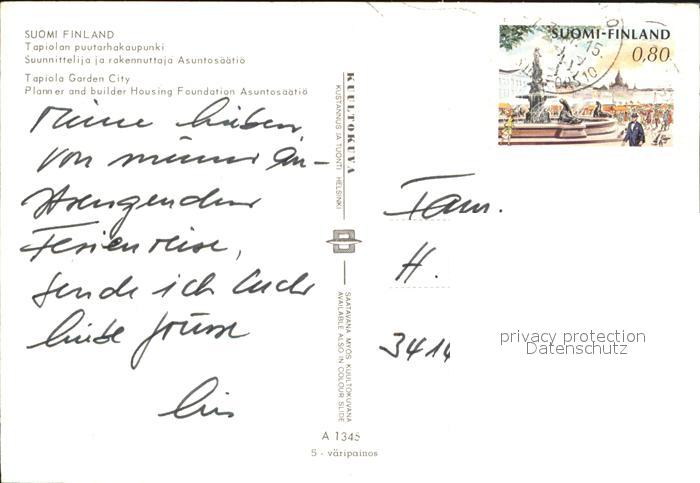 SUOMI FINLAND
Tapiolan puutarhakaupunki
Suunnittelija ja rakennuttaja Asuntosäätiö
Tapiola Garden City
Planner and builder Housing Foundation Asuntosäätiö
Meine Lieben,
Von meiner An-
strengenden
Ferienreise,
sende ich Euch
liebe Grüsse
KUULTOKUVA
KUSTANNUS JA TUONTI HELSINKI
SAATAVANA MYÖS KUULTOKUVANA
AVAILABLE ALSO IN COLOUR SLIDE
A 1345
5 - väripainos
SUOMI-FINLAND
0,80
Fam.
H.
3414
privacy protection
Datenschutz